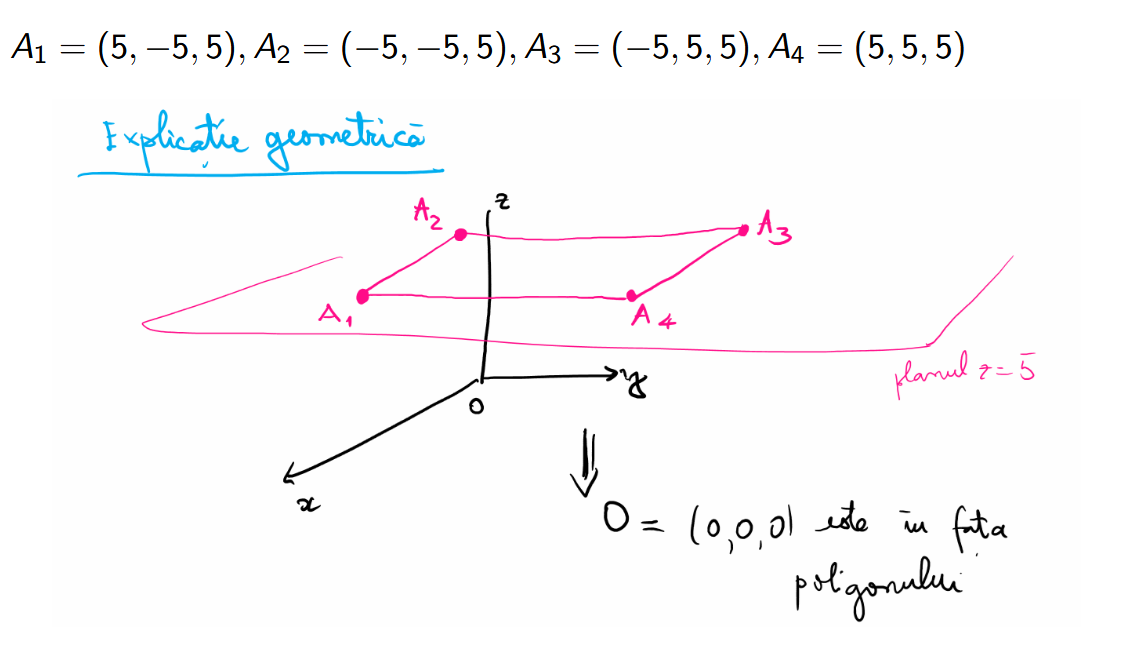 A₁ = (5, −5, 5), A₂ = (−5, −5, 5), A₃ = (−5, 5, 5), A₄ = (5, 5, 5)
Explicație geometrică
z
A₂
A₃
A₁
A₄
planul z = 5
y
O
x
⇓
O = (0,0,0) este în fața
poligonului